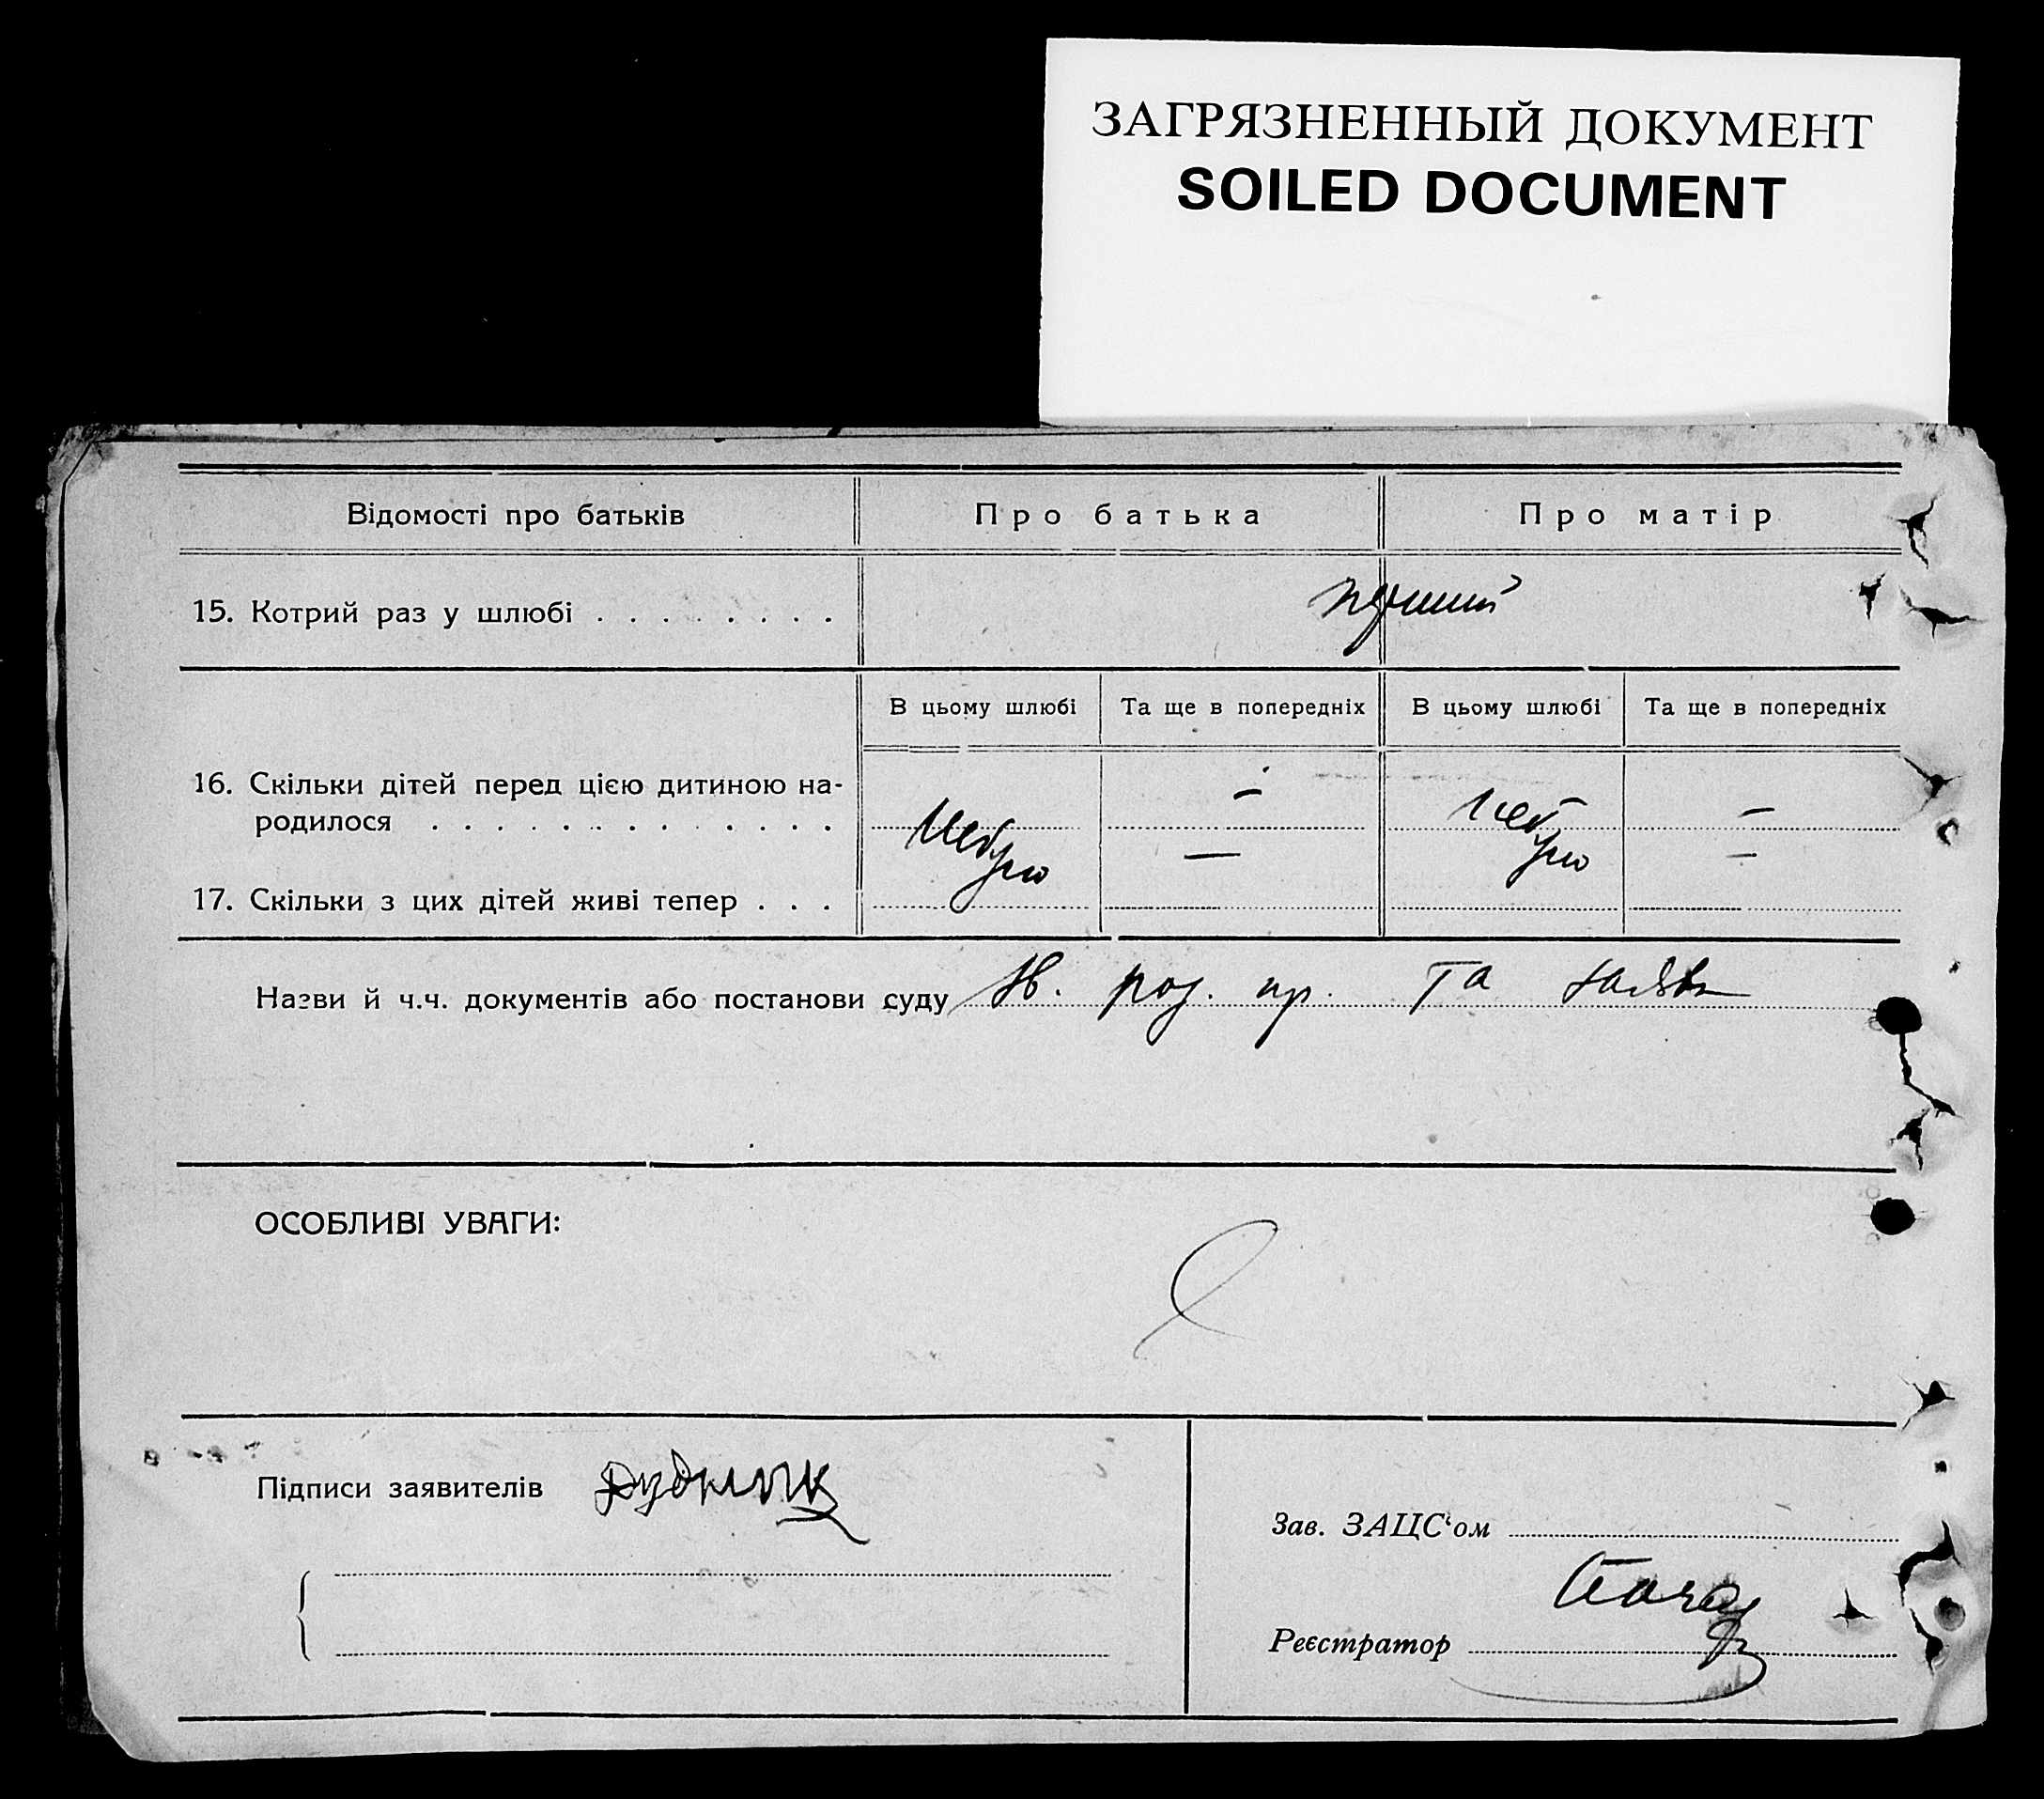 ЗАГРЯЗНЕННЫЙ ДОКУМЕНТ
SOILED DOCUMENT
Відомості про батьків Про батька Про матір
15. Котрий раз у шлюбі . . . . . . . . перший
В цьому шлюбі Та ще в попередніх В цьому шлюбі Та ще в попередніх
16. Скільки дітей перед цією дитиною на-
родилося . . . . . . . . . . . . . небуло — небуло —
17. Скільки з цих дітей живі тепер . . . — —
Назви й ч.ч. документів або постанови суду та
ОСОБЛИВІ УВАГИ:
Підписи заявителів Дудник
Зав. ЗАЦС‘ом
Реєстратор